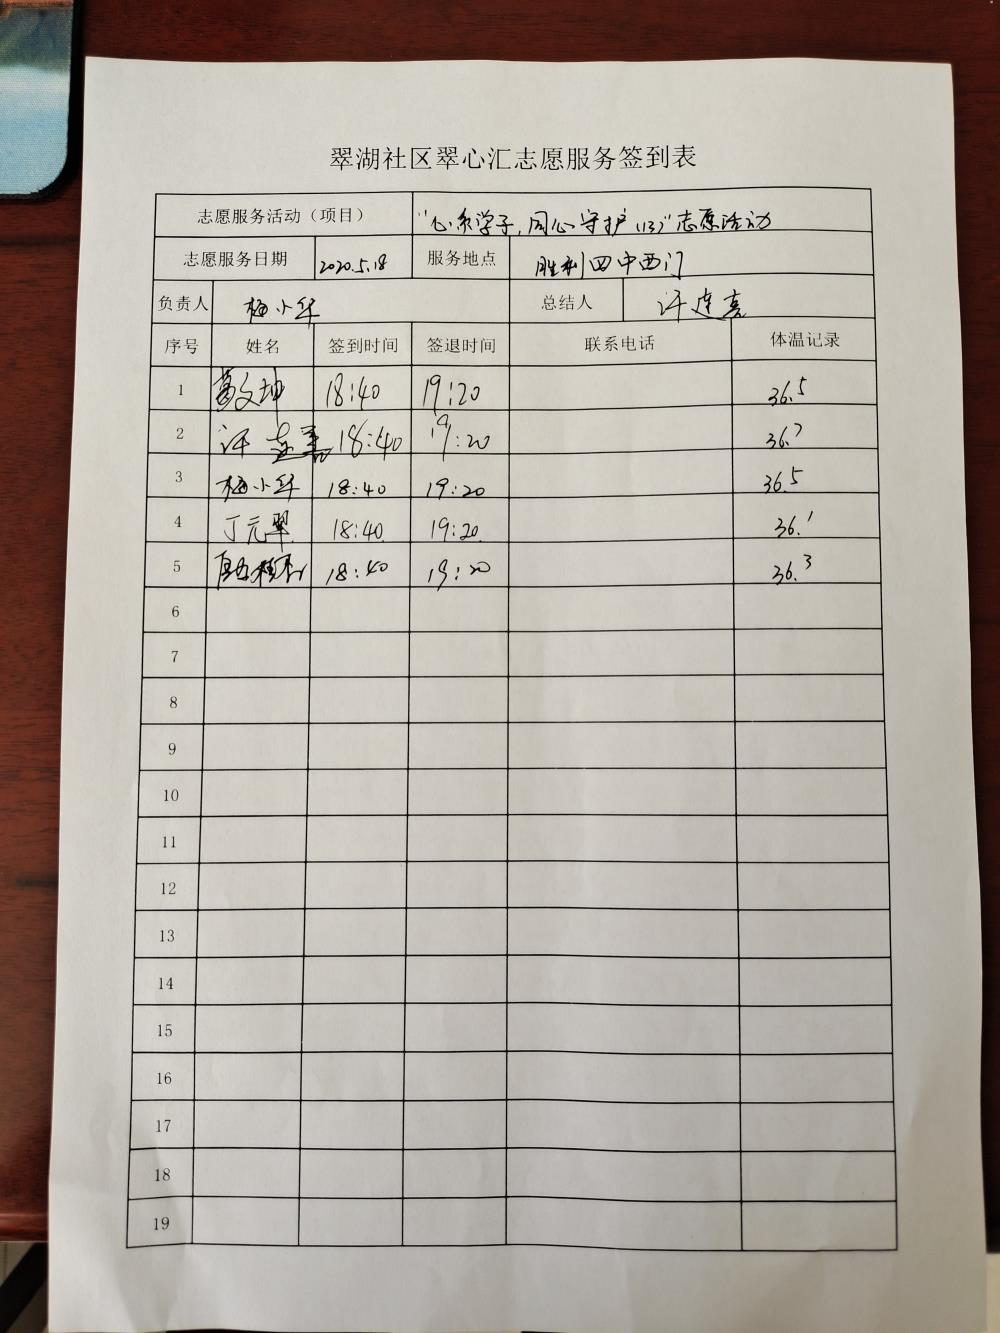 翠湖社区翠心汇志愿服务签到表
志愿服务活动（项目） “心系学子，同心守护（13）”志愿活动
志愿服务日期 2020.5.18 服务地点 胜利四中西门
负责人 梅小华 总结人 许连喜
序号 姓名 签到时间 签退时间 联系电话 体温记录
1 葛文坤 18:40 19:20 36.5
2 许连喜 18:40 19:20 36.7
3 梅小华 18:40 19:20 36.5
4 丁元翠 18:40 19:20 36.1
5 18:40 19:20 36.3
6
7
8
9
10
11
12
13
14
15
16
17
18
19